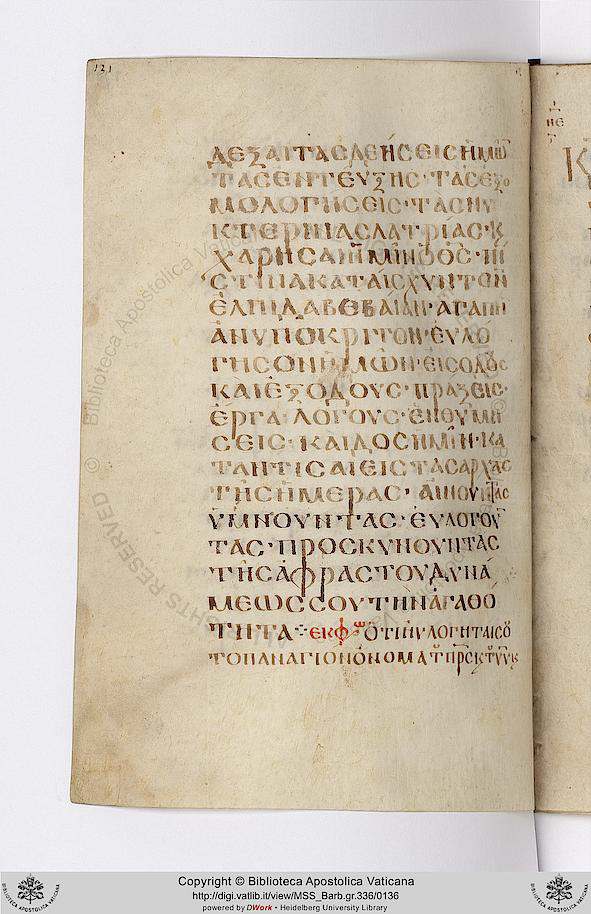 121
ΔΕΞΑΙΤΑΣΔΕΗΣΕΙΣΗΜῶ
ΤΑΣΕΝΤΕΥΞΗΣ·ΤΑΣΕΞΟ
ΜΟΛΟΓΗΣΕΙΣ·ΤΑΣΝΥ
ΚΤΕΡΙΝΑΣΛΑΤΡΙΑΣ·Κ
ΧΑΡΗΣΑΙΗΜΙΝΘΣ·ΠΙ
ΣΤΙΝΑΚΑΤΑΙΣΧΥΝΤΟΝ
ΕΛΠΙΔΑΒΕΒΑΙΑΝ·ΑΓΑΠΗ
ΑΝΥΠΟΚΡΙΤΟΝ·ΕΥΛΟ
ΓΗΣΟΝΗΜΩΝ·ΕΙΣΟΔΟΥΣ
ΚΑΙΕΞΟΔΟΥΣ·ΠΡΑΞΕΙΣ·
ΕΡΓΑ·ΛΟΓΟΥΣ·ΕΝΘΥΜΗ
ΣΕΙΣ·ΚΑΙΔΟΣΗΜΙΝ·ΚΑ
ΤΑΝΤΙΣΑΙΕΙΣΤΑΣΑΡΧΑΣ
ΤΗΣΗΜΕΡΑΣ·ΑΙΝΟΥΝΤΑΣ
ΥΜΝΟΥΝΤΑΣ·ΕΥΛΟΓΟΥ
ΤΑΣ·ΠΡΟΣΚΥΝΟΥΝΤΑΣ
ΤΗΣΑΦΡΑΣΤΟΥΔΥΝΑ
ΜΕΩΣΣΟΥΤΗΝΑΓΑΘΟ
ΤΗΤΑ·ΕΚΦω ΟΤΙΗΥΛΟΓΗΤΑΙΣΟ
ΤΟΠΑΝΑΓΙΟΝΟΝΟΜΑ
ΝΕ
Κ
© Biblioteca Apostolica Vaticana
RIGHTS RESERVED ©
Copyright © Biblioteca Apostolica Vaticana
http://digi.vatlib.it/view/MSS_Barb.gr.336/0136
powered by DWork - Heidelberg University Library